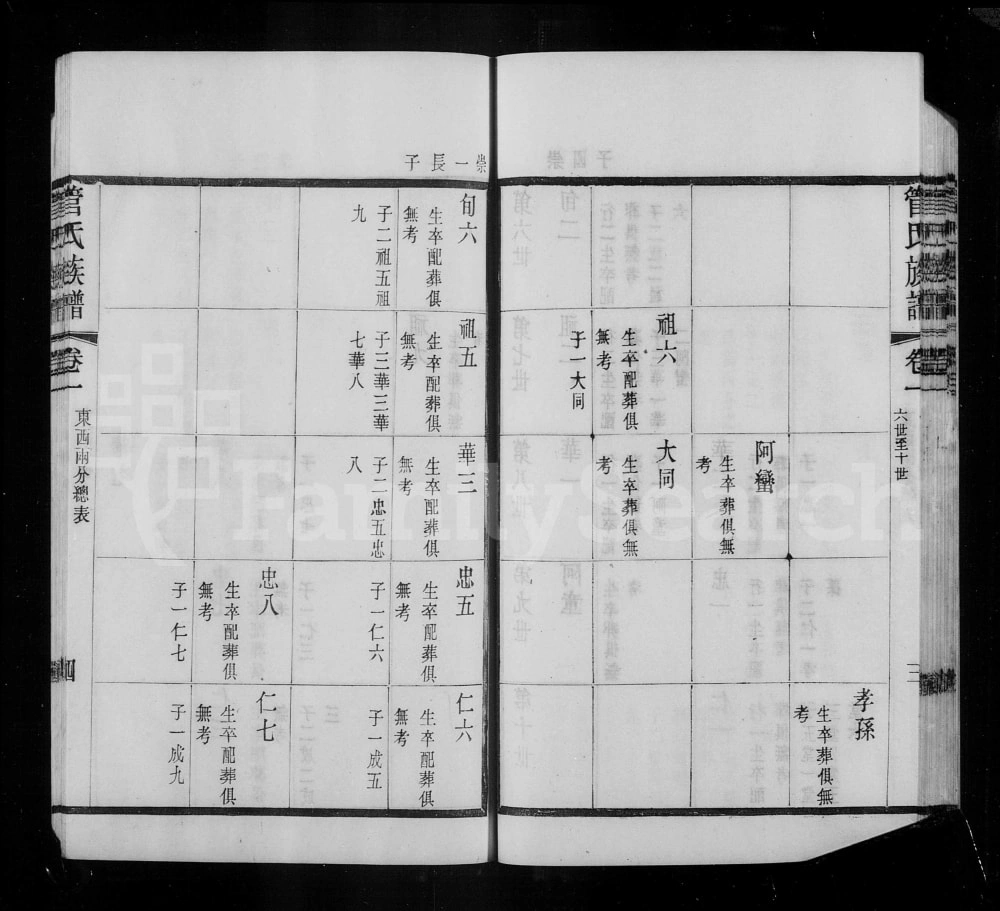 管氏族譜
卷一
六世至十世
二
孝孫
生卒葬俱無
考
阿蠻
生卒葬俱無
考
祖六
生卒配葬俱
無考
子一大同
大同
生卒葬俱無
考
崇一長子
旬六
生卒配葬俱
無考
子二祖五祖
九
祖五
生卒配葬俱
無考
子三華三華
七華八
華三
生卒配葬俱
無考
子二忠五忠
八
忠五
生卒配葬俱
無考
子一仁六
仁六
生卒配葬俱
無考
子一成五
忠八
生卒配葬俱
無考
子一仁七
仁七
生卒配葬俱
無考
子一成九
管氏族譜
卷一
東西兩分總表
四
FamilySearch